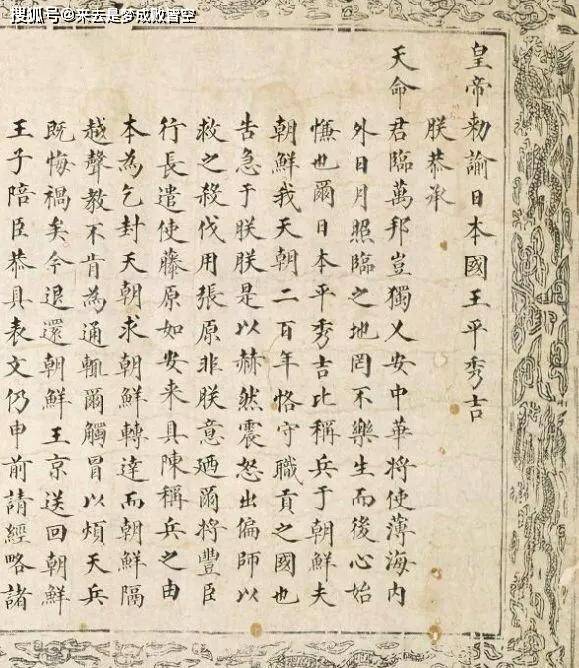 搜狐号@来去是梦成败皆空
皇帝勅諭日本國王平秀吉
朕恭承
天命君臨萬邦豈獨乂安中華將使薄海內
外日月照臨之地罔不樂生而後心始
慊也爾日本平秀吉比稱兵于朝鮮夫
朝鮮我天朝二百年恪守職貢之國也
告急于朕朕是以赫然震怒出偏師以
救之殺伐用張原非朕意廼爾將豐臣
行長遣使藤原如安来具陳稱兵之由
本為乞封天朝求朝鮮轉達而朝鮮隔
越聲教不肯為通輒爾觸冒以煩天兵
既悔禍矣今退還朝鮮王京送回朝鮮
王子陪臣恭具表文仍申前請經略諸